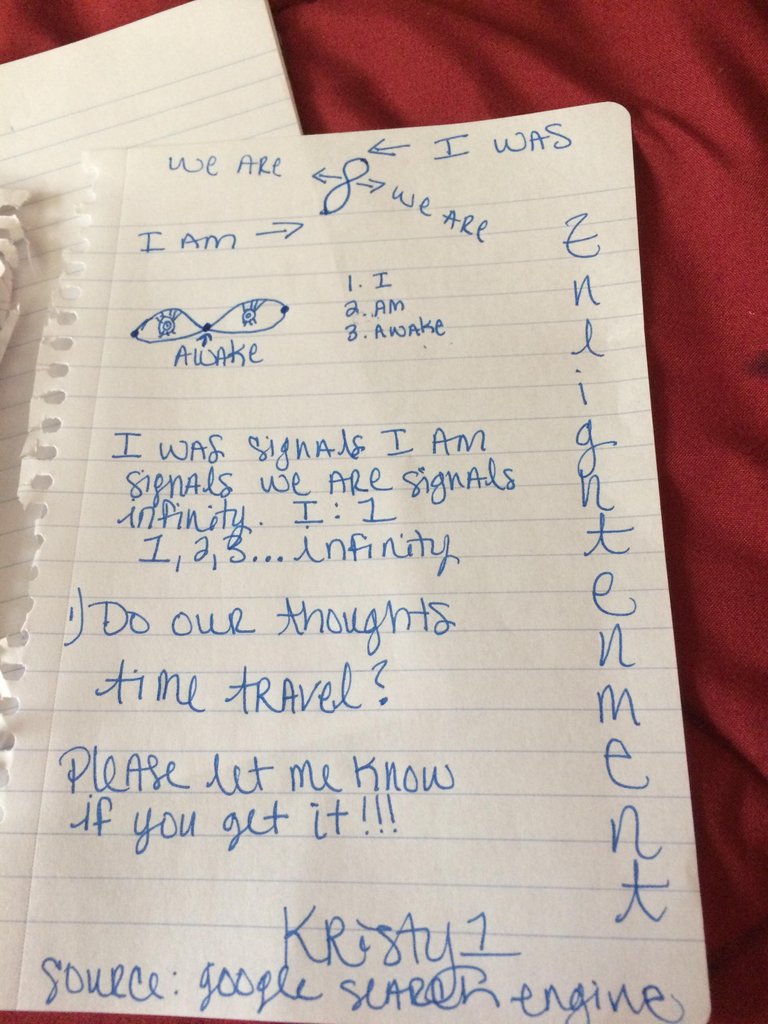 I WAS
WE ARE
WE ARE
I AM
1. I
2. AM
3. AWAKE
AWAKE
I WAS signals I AM
signals we ARE signals
infinity. I : 1
1, 2, 3... infinity
:) Do our thoughts
time travel?
Please let me know
if you get it!!!
Enlightenment
Kristy1
source: google search engine